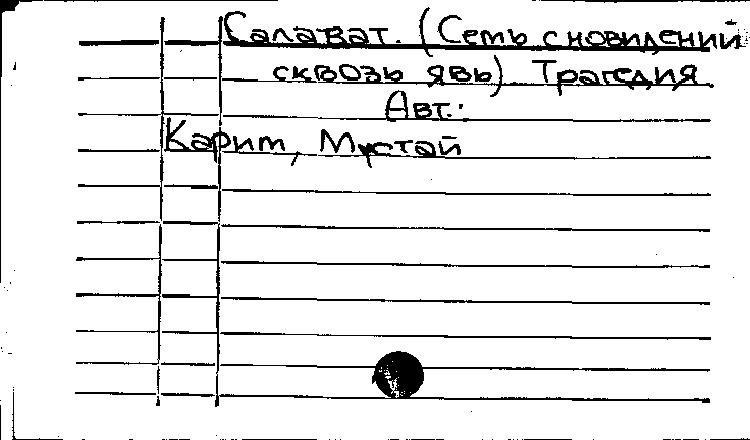 Салават. (Семь сновидений
сквозь явь) Трагедия.
Авт.:
Карим, Мустай